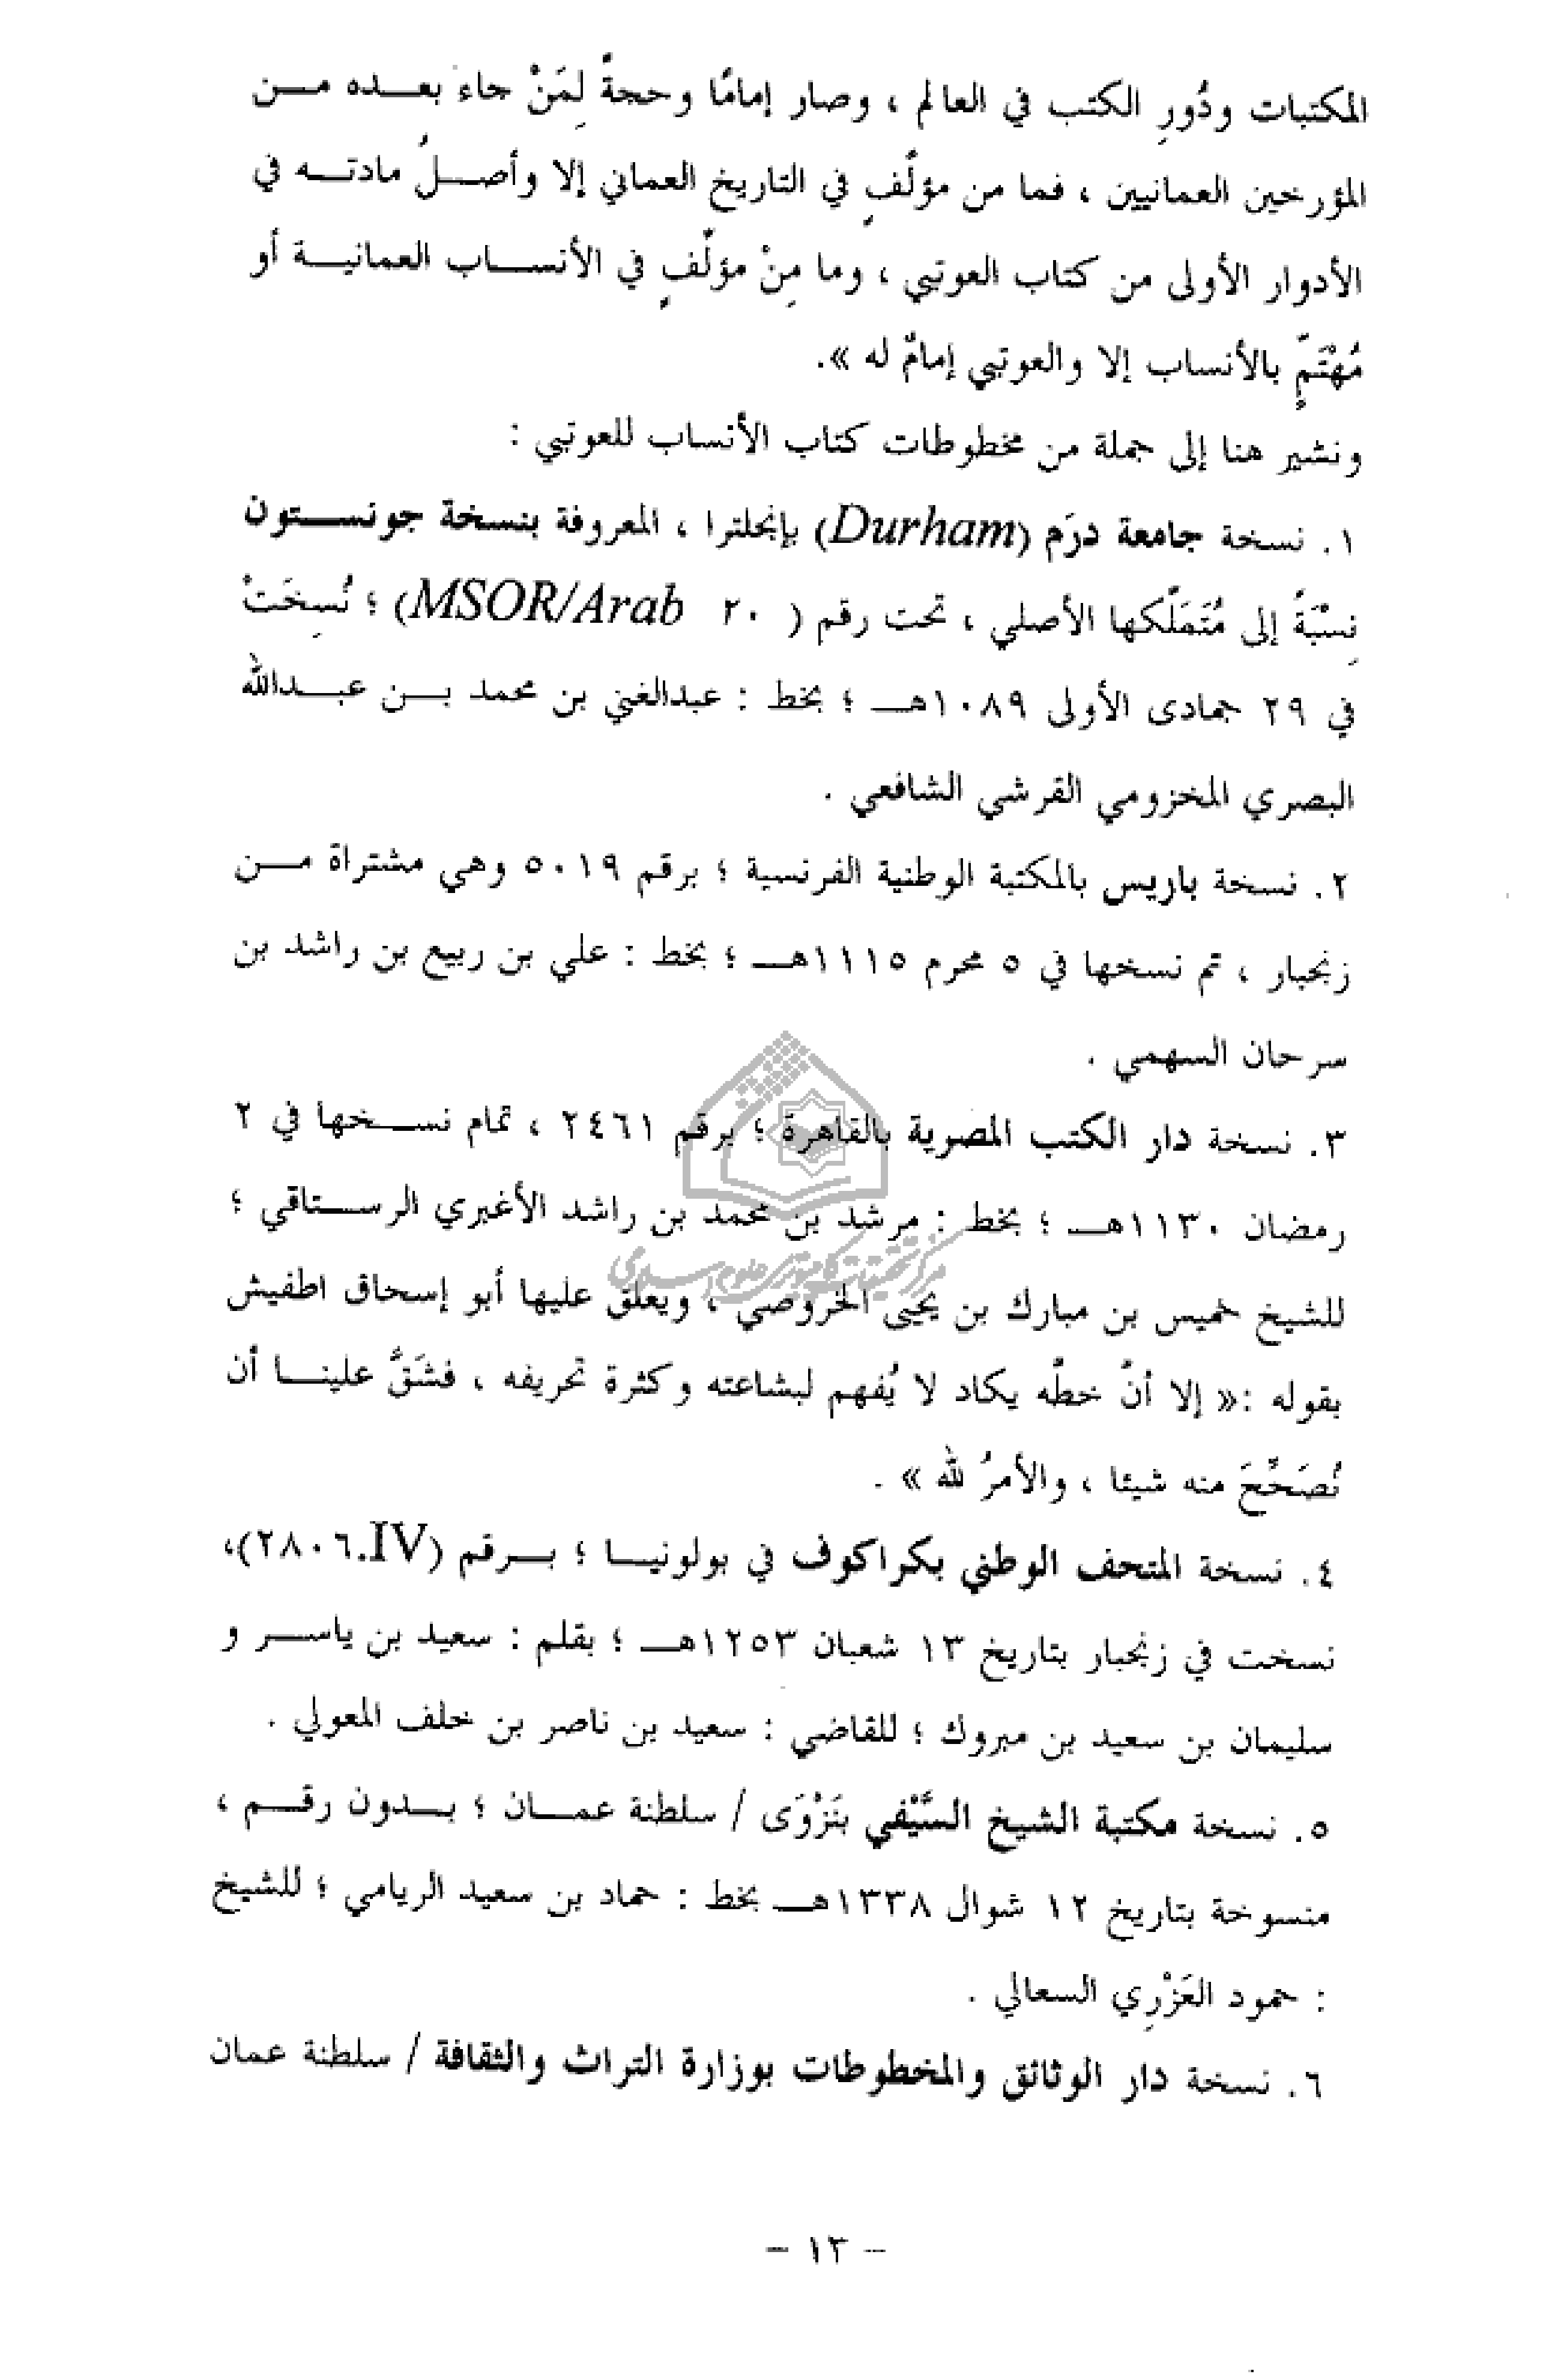 المكتبات ودُورِ الكتب في العالم ، وصار إمامًا وحجةً لِمَنْ جاء بعـــده مـــن
المؤرخين العمانيين ، فما من مؤلَّفٍ في التاريخ العماني إلا وأصـــلُ مادتـــه في
الأدوار الأولى من كتاب العوتبي ، وما مِنْ مؤلَّفٍ في الأنســـاب العمانيـــة أو
مُهْتَمٍّ بالأنساب إلا والعوتبي إمامٌ له ».
ونشير هنا إلى جملة من مخطوطات كتاب الأنساب للعوتبي :
١. نسخة جامعة درَم (Durham) بإنجلترا ، المعروفة بنسخة جونســـتون
نِسْبَةً إلى مُتَمَلِّكها الأصلي ، تحت رقم ( ٢٠ MSOR/Arab) ؛ نُسِخَتْ
في ٢٩ جمادى الأولى ١٠٨٩هـــ ؛ بخط : عبدالغني بن محمد بـــن عبـــدالله
البصري المخزومي القرشي الشافعي .
٢. نسخة باريس بالمكتبة الوطنية الفرنسية ؛ برقم ٥٠١٩ وهي مشتراة مـــن
زنجبار ، تم نسخها في ٥ محرم ١١١٥هـــ ؛ بخط : علي بن ربيع بن راشد بن
سرحان السهمي .
٣. نسخة دار الكتب المصرية بالقاهرة ؛ برقم ٢٤٦١ ، تمام نســـخها في ٢
رمضان ١١٣٠هـــ ؛ بخط : مرشد بن محمد بن راشد الأغبري الرســـتاقي ؛
مركز تحقيقات كامپيوتري علوم اسلامي
للشيخ خميس بن مبارك بن يحيى الخروصي ، ويعلق عليها أبو إسحاق اطفيش
بقوله :« إلا أنَّ خطَّه يكاد لا يُفهم لبشاعته وكثرة تحريفه ، فشَقَّ علينـــا أن
نُصَحِّحَ منه شيئا ، والأمرُ لله » .
٤. نسخة المتحف الوطني بكراكوف في بولونيـــا ؛ بـــرقم (٢٨٠٦.IV)،
نسخت في زنجبار بتاريخ ١٣ شعبان ١٢٥٣هـــ ؛ بقلم : سعيد بن ياســـر و
سليمان بن سعيد بن مبروك ؛ للقاضي : سعيد بن ناصر بن خلف المعولي .
٥. نسخة مكتبة الشيخ السَّيْفي بنَزْوَى / سلطنة عمـــان ؛ بـــدون رقـــم ،
منسوخة بتاريخ ١٢ شوال ١٣٣٨هـــ بخط : حماد بن سعيد الريامي ؛ للشيخ
: حمود العَزْرِي السعالي .
٦. نسخة دار الوثائق والمخطوطات بوزارة التراث والثقافة / سلطنة عمان
– ١٣ –